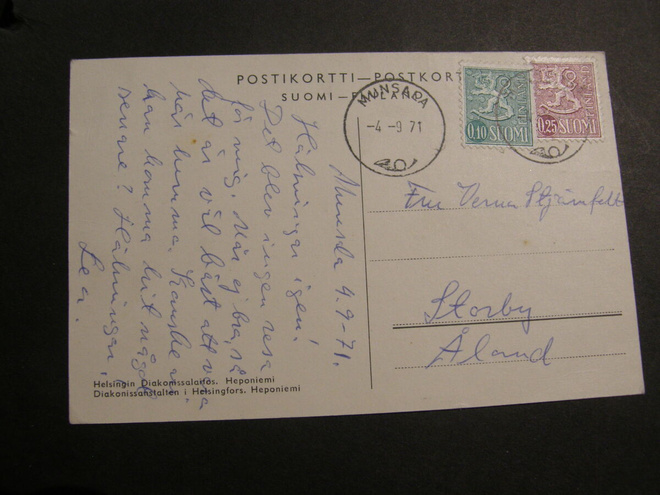 POSTIKORTTI—POSTKORT
SUOMI—FINLAND
MUNSALA
-4 -9 71
0,10 SUOMI
0,25 SUOMI
Munsala 4.9-71.
Hälsningar igen!
Det blev ingen resa
för mig. Mår ej bra, så
det är väl bäst att vara
när hemma. Kanske
kan komma hit någon
senare? Hälsningar,
Lea.
Fru Verna Stjärnfelt
Storby
Åland
Helsingin Diakonissalaitos. Heponiemi
Diakonissanstalten i Helsingfors. Heponiemi